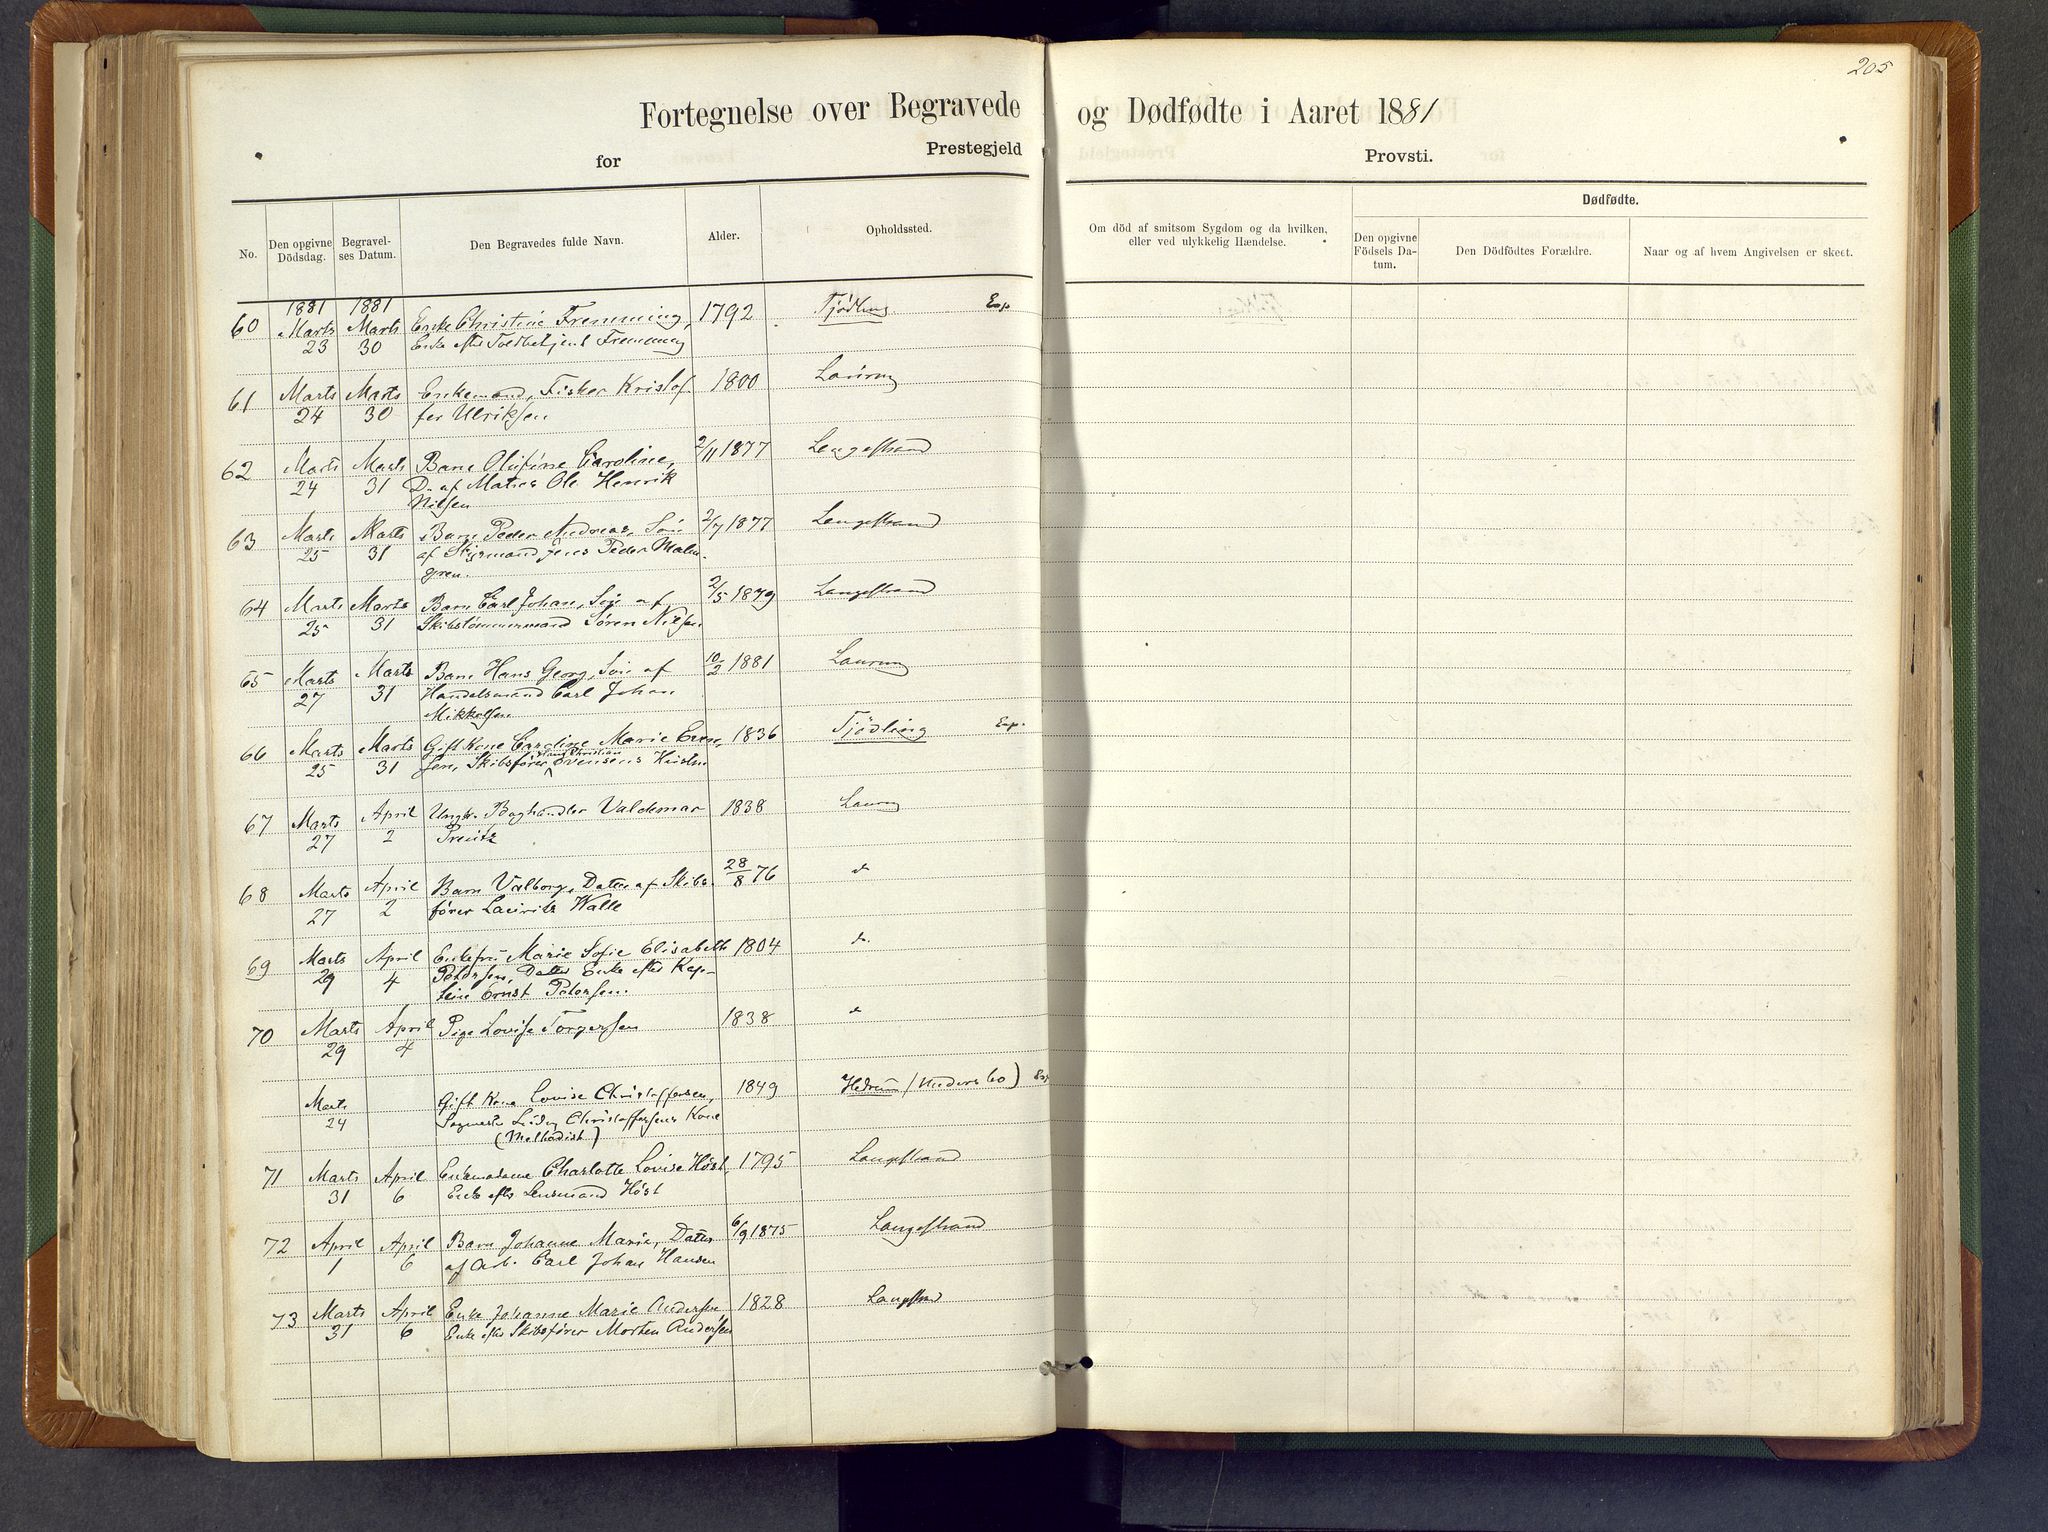 205
Fortegnelse over Begravede og Dødfødte i Aaret 1881
for Prestegjeld Provsti.
No. Den opgivne Dödsdag. Begravel-ses Datum. Den Begravedes fulde Navn. Alder. Opholdssted. Om död af smitsom Sygdom og da hvilken, eller ved ulykkelig Hændelse. Dødfødte.
Den opgivne Födsels Da-tum. Den Dödfödtes Forældre. Naar og af hvem Angivelsen er skeet.
1881 1881
60 Marts Marts Enke Christine Fremming, 1792 Tjödling Exp
23 30 Enke efter Toldbetjent Fremming
61 Marts Marts Enkemand, Fisker Kristof- 1800 Laurvig
24 30 fer Ulriksen
62 Marts Marts Barn Olufine Caroline, 2/11 1877 Langestrand
24 31 D. af Matros Ole Henrik
Nilsen
63 Marts Marts Barn Peder Andreas, Sön 2/7 1877 Langestrand
25 31 af Styrmand Jens Peder Malm-
gren.
64 Marts Marts Barn Carl Johan, Sön af 2/5 1879 Langestrand
25 31 Skibstömmermand Sören Nilsen
65 Marts Marts Barn Hans Georg, Sön af 10/2 1881 Laurvig
27 31 Handelsmand Carl Johan
Mikkelsen
66 Marts Marts Gift Kone Caroline Marie Even- 1836 Tjödling Exp.
25 31 sen, Skibsförer Hans Christian Evensens Hustru
67 Marts April Ungk. Boghandler Valdemar 1838 Laurvig
27 2
68 Marts April Barn Valborg, Datter af Skibs- 28/8 76 do
27 2 förer Lauritz Walle
69 Marts April Enkefru Marie Sofie Elisabeth 1804 do.
29 4 Petersen, Datter Enke efter Kap-
tein Ernst Petersen.
70 Marts April Pige Lovise Torgersen 1838 do
29 4
Marts Gift Kone Lovise Christoffersen, 1849 Hedrum (Nedersbo) Exp
24 Sagmester Ludvig Christoffersens Kone
(Methodist)
71 Marts April Enkemadame Charlotte Lovise Höst 1795 Langestrand
31 6 Enke efter Lensmand Höst
72 April April Barn Johanne Marie, Datter 6/9 1875 Langestrand
1 6 af Arb. Carl Johan Hansen
73 Marts April Enke Johanne Marie Andersen 1828 Langestrand
31 6 Enke efter Skibsförer Morten Andersen